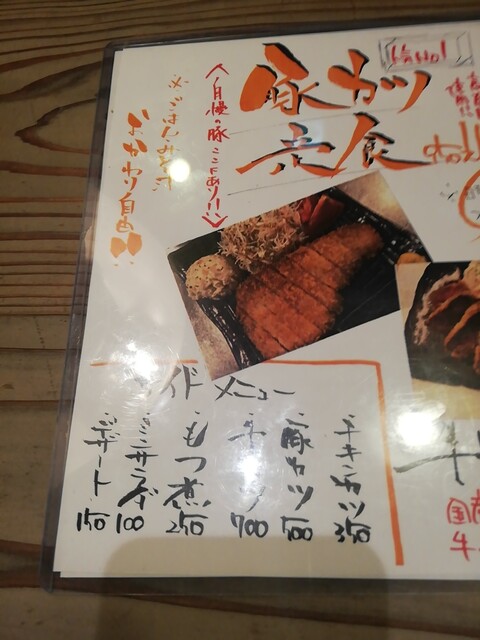 豚カツ
定食
《自慢の豚ここにあり!!》
※ごはんみそ汁
おかわり自由!!
サイドメニュー
・チキンカツ 350
・豚カツ 500
・牛カツ 700
・もつ煮 250
・ミニサラダ 100
・デザート 150
牛
国産
牛